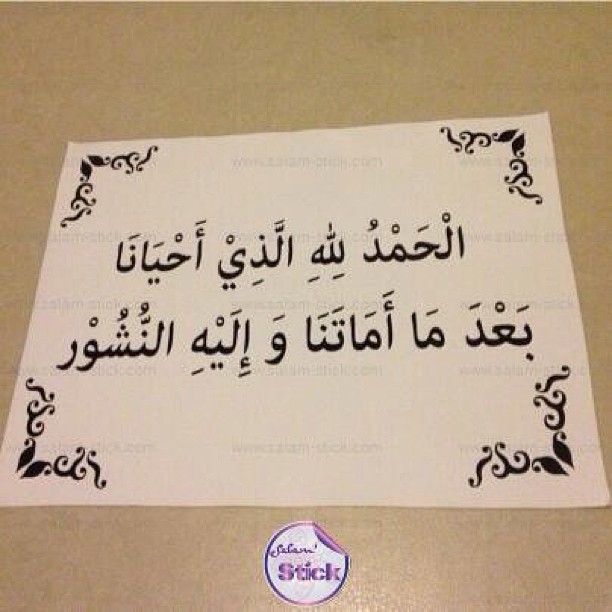 الْحَمْدُ لِلّٰهِ الَّذِيْ أَحْيَانَا
بَعْدَ مَا أَمَاتَنَا وَ إِلَيْهِ النُّشُوْر
www.salam-stick.com
Salam'
Stick